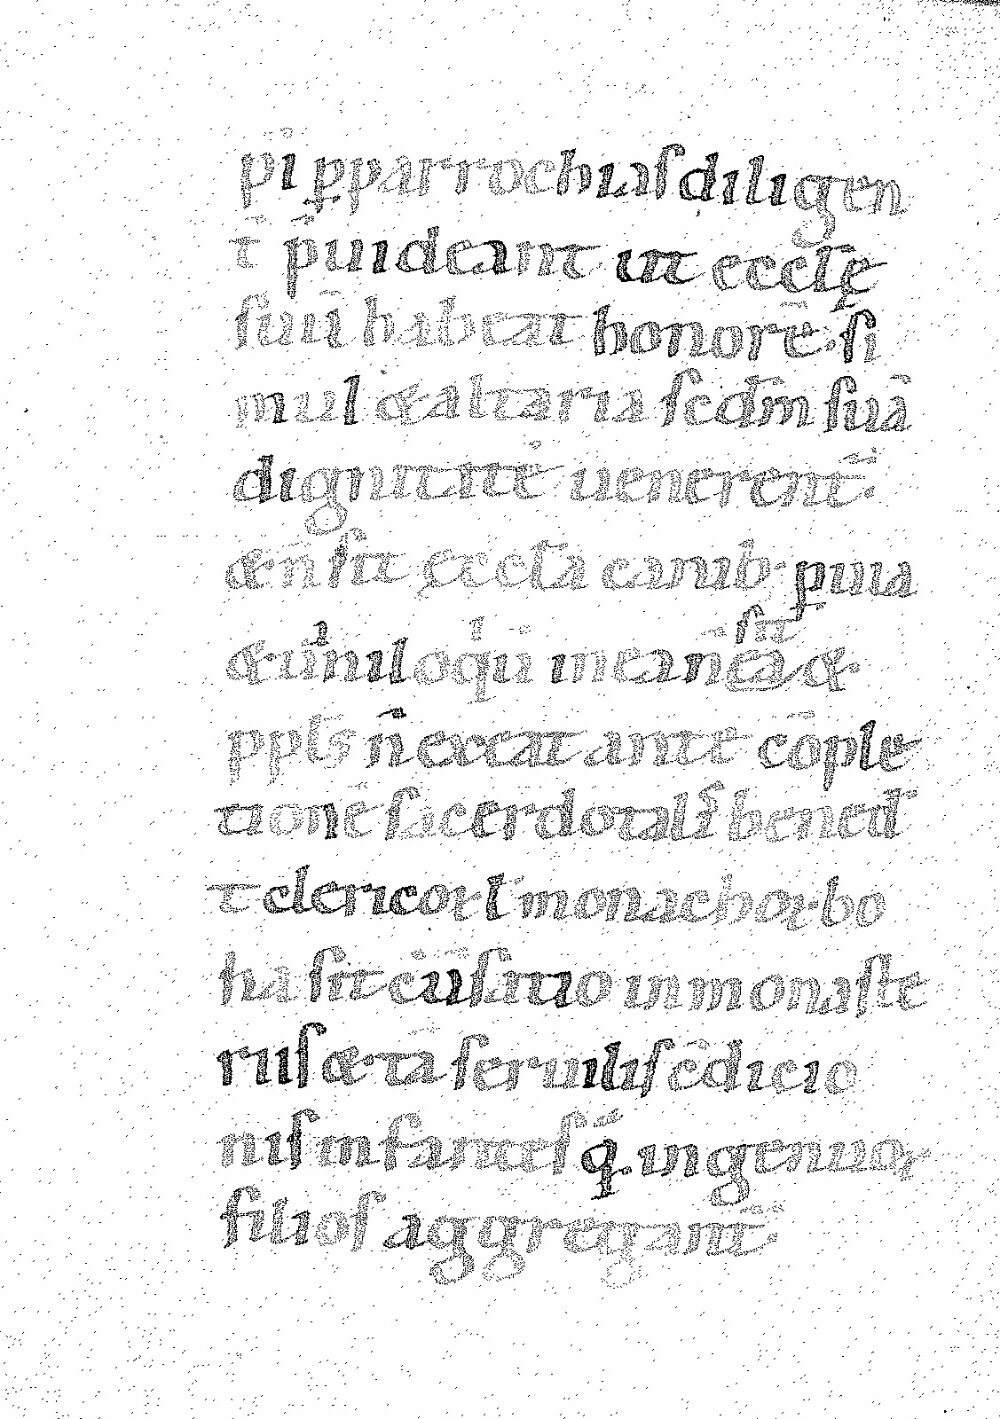 pi pparrochias diligen
t̄ p̄uideant ut eccłę
suū habeat honorē · si
mul & altaria scdm̄ suā
dignitatē uenerent̄ ·
& n̄ sit eccła canib· puia
& in eā n̄ eā &
ppłs n̄ exeat ante cōple
tionē sacerdotalis bened̄
t clericoꝝ ł monachoꝝ bo
na sit inmonaste
riis & tā seruilis cōdicio
nis infantes q̄ · ingenuoꝝ
filios aggregant̄ ·